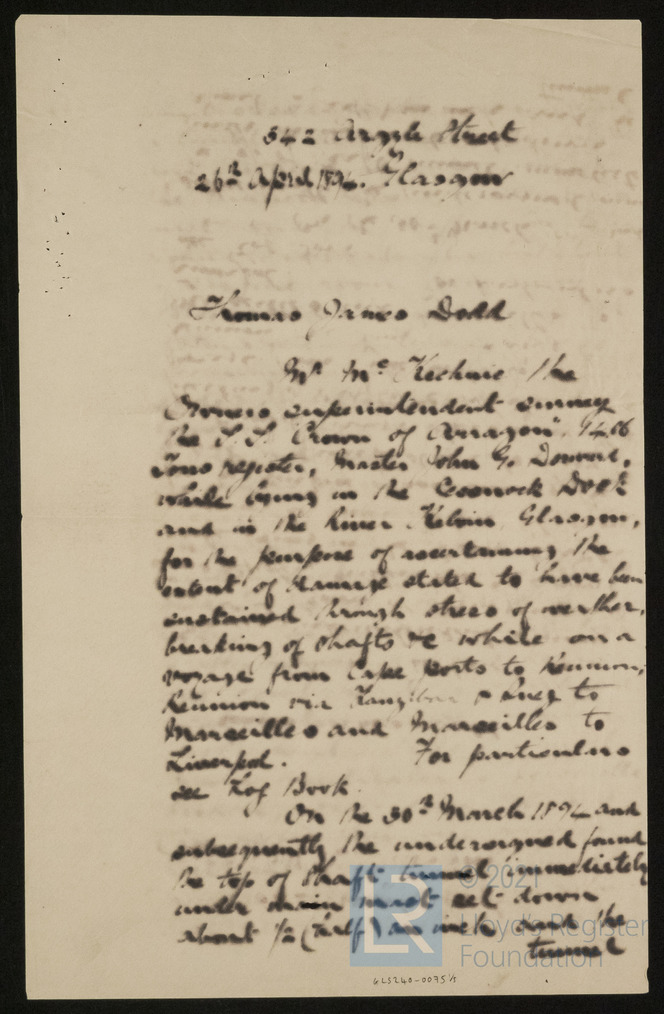 542 Argyle Street
26th April 1894. Glasgow
Thomas James Dodd
Mr Mc Kechnie the
Owners superintendent survey
the S.S. "Crown of Arragon",
Tons register, Master John G. Downs,
while lying in the Cessnock Dock
and in the River Kelvin Glasgow,
for the purpose of ascertaining the
extent of damage stated to have been
sustained through stress of weather,
breaking of shafts &c while on a
voyage from Cape ports to Reunion,
Reunion via Zanzibar & Suez to
Marseilles and Marseilles to
Liverpol. For particulars
see Log Book.
On the 30th March 1894 and
subsequently the undersigned found
the top of Shaft tunnel immediately
under main mast set down
about 1/2 (half) an inch and the
tunnel
GLS240-0075/1
LR
© 2021
Lloyd's Register
Foundation